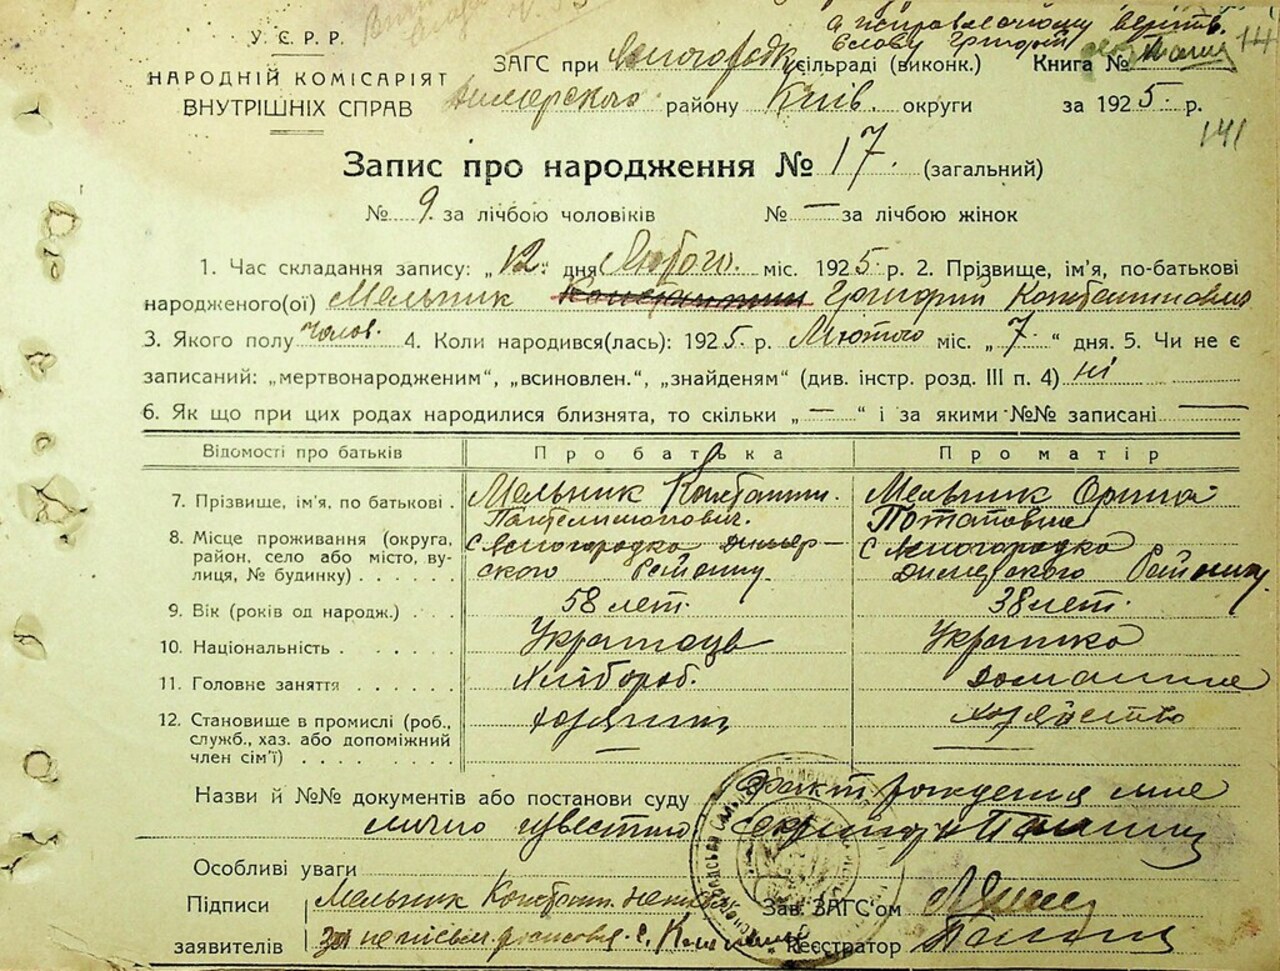 У.С.Р.Р.
НАРОДНІЙ КОМІСАРІЯТ
ВНУТРІШНІХ СПРАВ
а исправленному верить.
Слову Григорій
ЗАГС при Ясногородк. сільраді (виконк.) Книга № 14
Димерського району Київ. округи за 1925 р.
141
Запис про народження № 17. (загальний)
№ 9. за лічбою чоловіків № — за лічбою жінок
1. Час складання запису: „12“ дня Лютого. міс. 1925 р. 2. Прізвище, ім'я, по-батькові
народженого(ої) Мельник Константин Григорій Константинович
3. Якого полу чолов. 4. Коли народився(лась): 1925 р. Лютого міс. „7“ дня. 5. Чи не є
записаний: „мертвонародженим“, „всиновлен.“, „знайденям“ (див. інстр. розд. III п. 4) ні
6. Як що при цих родах народилися близнята, то скільки „—“ і за якими №№ записані —
Відомості про батьків Про батька Про матір
7. Прізвище, ім'я, по батькові . Мельник Константин. Мельник Орина
Пантелимонович. Потаповна
8. Місце проживання (округа, район, село або місто, вулиця, № будинку) . . . . . . с Ясногородка Димер- с Ясногородка
ского Району. Димерского Району.
9. Вік (років од народж.) . . . 58 лет. 38 лет.
10. Національність . . . . . . Украінець Украінка
11. Головне заняття . . . . . . Хлібороб. Домашнє
12. Становище в промислі (роб., служб., хаз. або допоміжний член сім'ї) . . . . . . . хозяїн хозяйство
Назви й №№ документів або постанови суду Факт рождения мне
лично известно секретарь
Особливі уваги
Підписи Мельник Константин Зав. ЗАГС'ом
заявителів Реєстратор